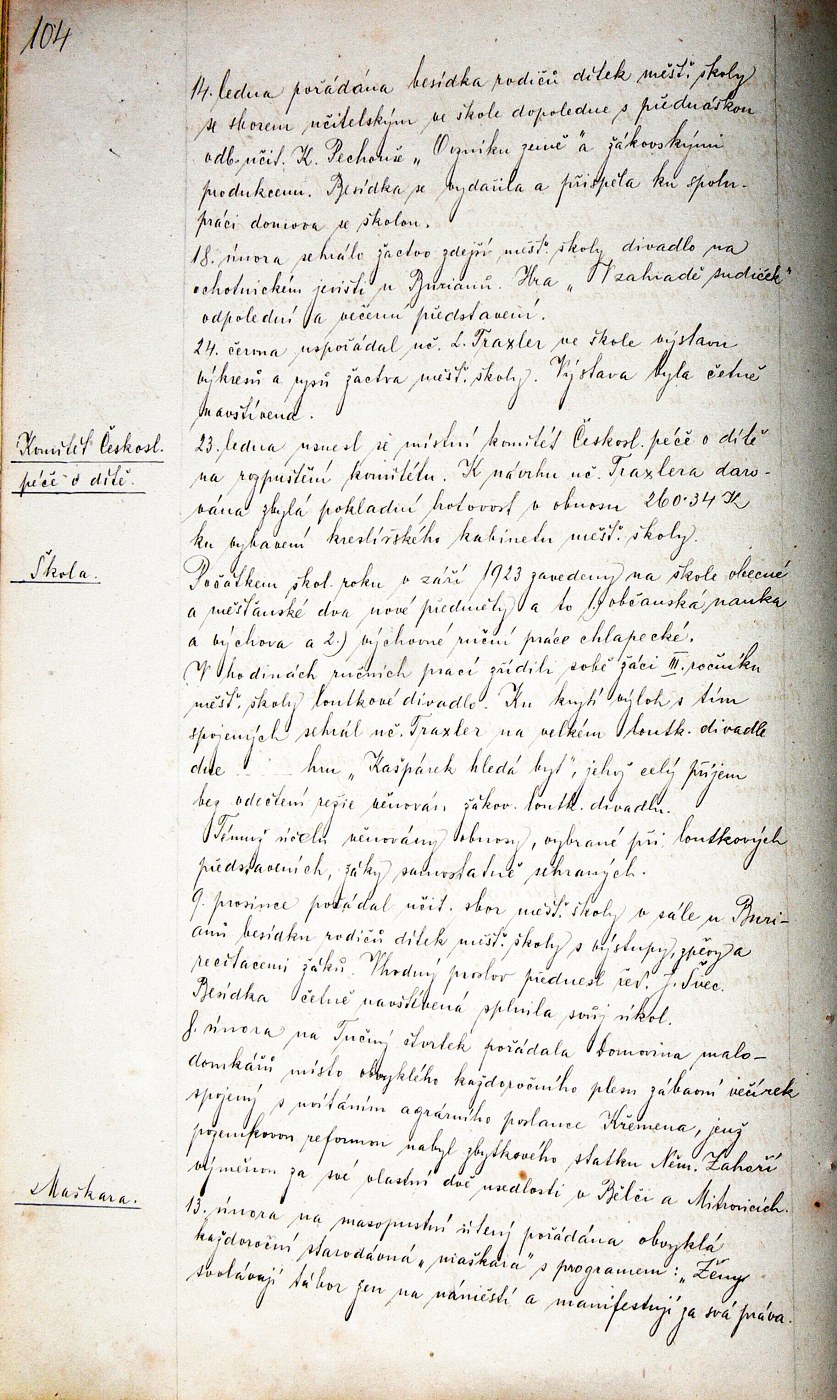 104
14. ledna pořádána besídka rodičů dítek měšť. školy
se sborem učitelským ve škole dopoledne s přednáškou
odb. učit. K. Pechouše „O vzniku země" a žákovskými
produkcemi. Besídka se vydařila a přispěla ku spolu-
práci domova se školou.
18. února sehrálo žactvo zdejší měšť. školy divadlo na
ochotnickém jevišti u Burianů. Hra „V zahradě sudiček"
odpolední a večerní představení.
24. června uspořádal uč. L. Traxler ve škole výstavu
výkresů a rysů žactva měšť. školy. Výstava byla četně
navštívena.
Komitét Českosl.
péče o dítě.
23. ledna usnesl se místní komitét Českosl. péče o dítě
na rozpuštění komitétu. K návrhu uč. Traxlera daro-
vána zbylá pokladní hotovost v obnosu 260·34 K
ku vybavení kreslířského kabinetu měšť. školy.
Škola.
Počátkem škol. roku v září 1923 zavedeny na škole obecné
a měšťanské dva nové předměty a to 1.) občanská nauka
a výchova a 2.) výchovné ruční práce chlapecké.
V hodinách ručních prací zřídili sobě žáci III. ročníku
měšť. školy loutkové divadlo. Ku krytí výloh s tím
spojených sehrál uč. Traxler na velkém loutk. divadle
dne . . . . hru „Kašpárek hledá byt", jehož celý příjem
bez odečtení režie věnován žákov. loutk. divadlu.
Témuž účelu věnovány obnosy, vybrané při loutkových
představeních, žáky samostatně sehraných.
9. prosince pořádal učit. sbor měšť. školy v sále u Buri-
anů besídku rodičů dítek měšť. školy s výstupy, zpěvy a
recitacemi žáků. Vhodný proslov přednesl řed. J. Švec.
Besídka četně navštívená splnila svůj úkol.
8. února na Tučný čtvrtek pořádala Domovina malo-
domkářů místo obvyklého každoročního plesu zábavní večírek
spojený s uvítáním agrárního poslance Křemena, jenž
pozemkovou reformou nabyl zbytkového statku Něm. Záhoří
výměnou za své vlastní dvě usedlosti v Bělči a Mitrovicích.
Maškara.
13. února na masopustní úterý pořádána obvyklá
každoroční starodávná „maškara" s programem: „Ženy
svolávají tábor žen na náměstí a manifestují za svá práva.